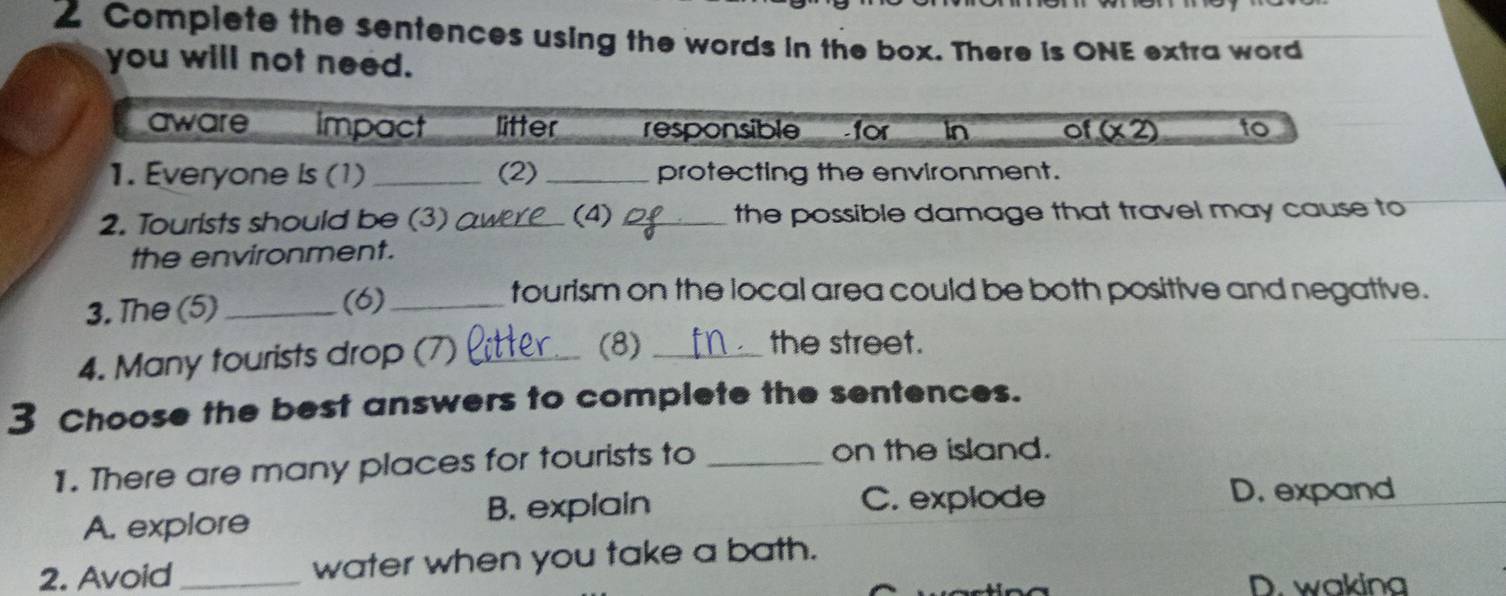 2 Complete the sentences using the words in the box. There is ONE extra word
you will not need.
aware impact litter responsible for in of (x 2) to
1. Everyone is (1) ______ (2) ______ protecting the environment.
2. Tourists should be (3) awere (4) of the possible damage that travel may cause to
the environment.
3. The (5) ______ (6) ______ tourism on the local area could be both positive and negative.
4. Many tourists drop (7) litter (8) in the street.
3 Choose the best answers to complete the sentences.
1. There are many places for tourists to ______ on the island.
A. explore B. explain C. explode D. expand
2. Avoid ______ water when you take a bath.
D. waking